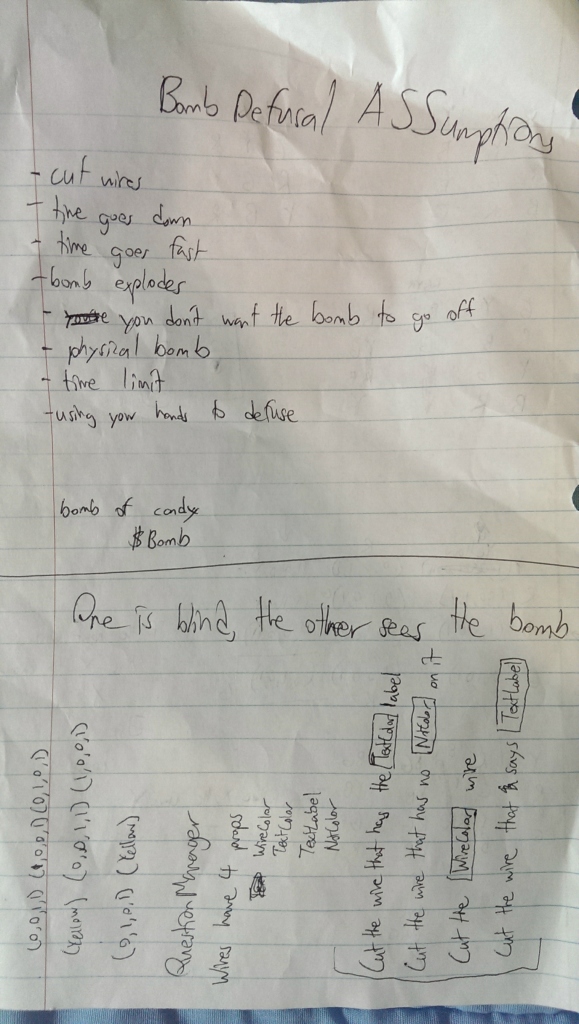 Bomb Defusal ASSumptions
- cut wires
- time goes down
- time goes fast
- bomb explodes
- you don't want the bomb to go off
- physical bomb
- time limit
- using your hands to defuse
bomb of candy
$Bomb
One is blind, the other sees the bomb
(0,0,1,1) (1,0,0,1) (0,1,0,1)
(Yellow) (0,0,1,1) (1,0,0,1)
(0,1,0,1) (Yellow)
Question Manager
Wires have 4 props
WireColor
TextColor
TextLabel
NotColor
Cut the wire that has the TextColor label
Cut the wire that has no NotColor on it
Cut the WireColor wire
Cut the wire that says TextLabel